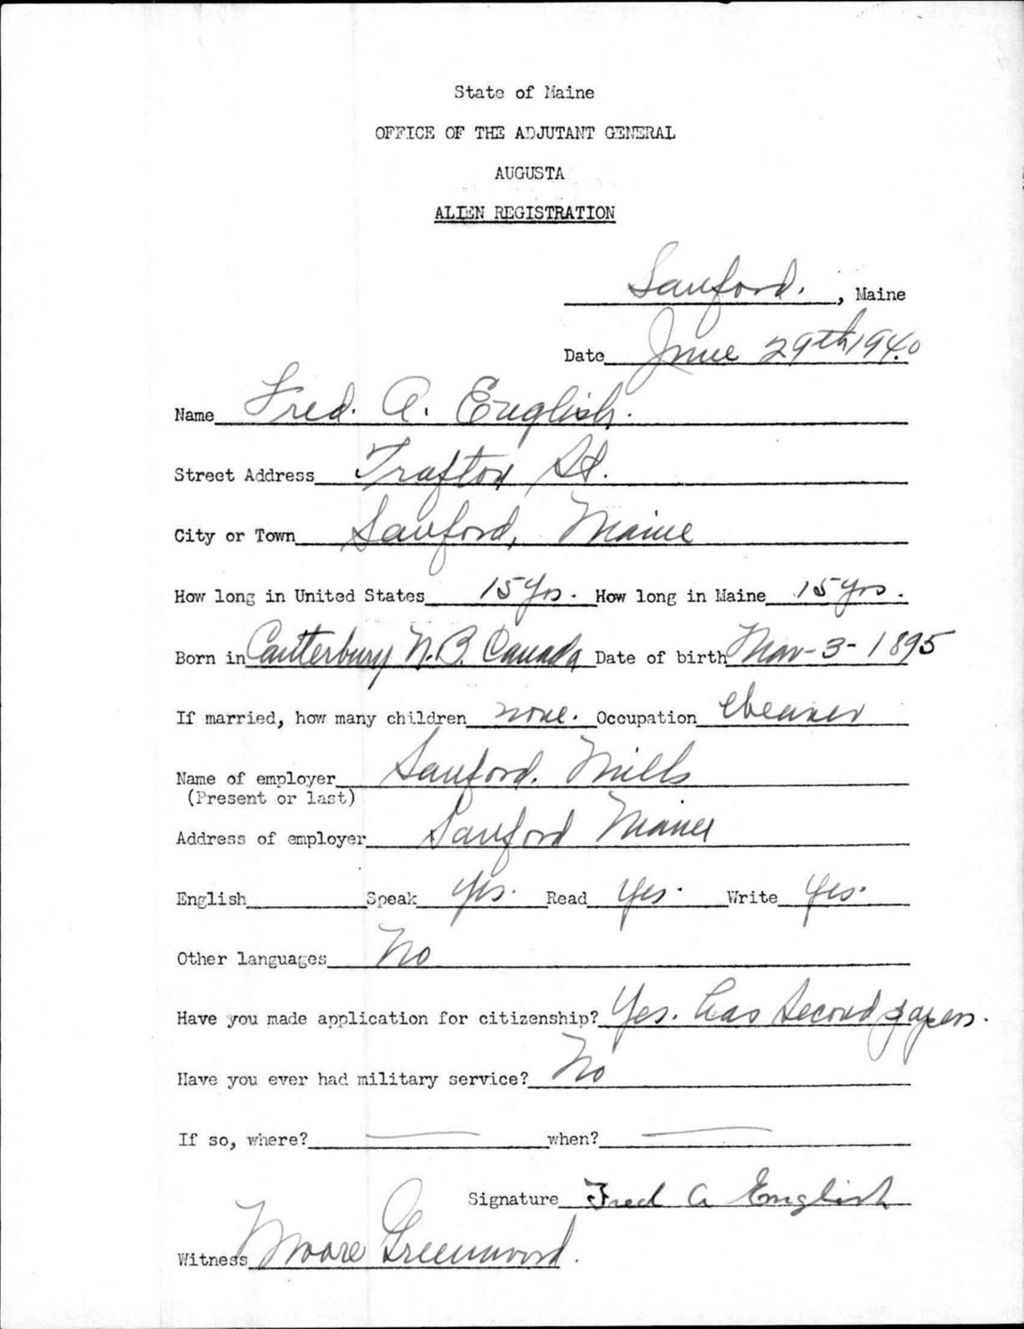 State of Maine
OFFICE OF THE ADJUTANT GENERAL
AUGUSTA
ALIEN REGISTRATION
Sanford. , Maine
Date June 29th 1940
Name Fred. A. English.
Street Address Trafton St.
City or Town Sanford, Maine
How long in United States 15 yrs. How long in Maine 15 yrs.
Born in Canterbury N.B. Canada Date of birth 3-1895
If married, how many children none. Occupation
Name of employer Sanford. Mills
(Present or last)
Address of employer Sanford Maine
English Speak yes. Read yes. Write yes.
Other languages No
Have you made application for citizenship? Yes. has second papers.
Have you ever had military service? No
If so, where? — when? —
Signature Fred A English
Witness Moore Greenwood.